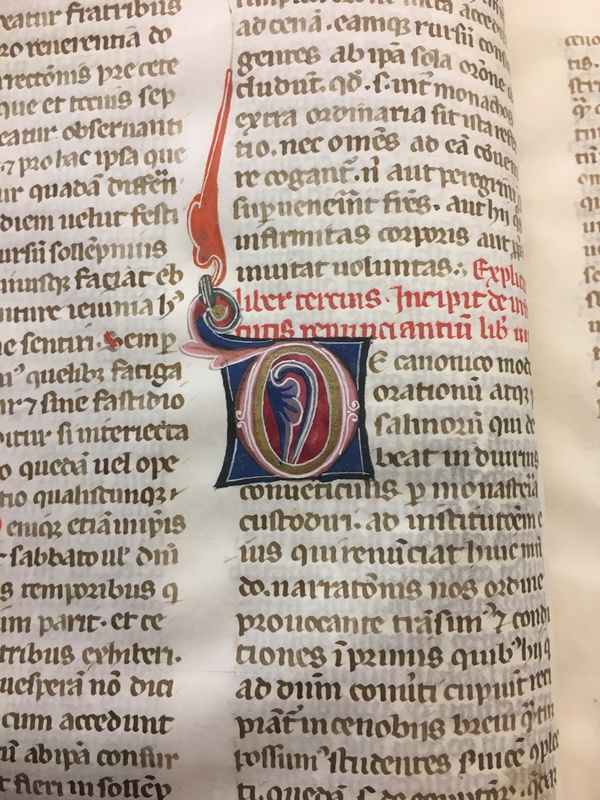 eatur fratribus
ro reuerentia do
que et tercius sep
eatur obseruanti
⁊ pro hac ipsa que
ur quadā diffēn
diem uelut festi
ursū sollēpniuis
niusqȝ faciat eb
niture ieiunia hʼ
ne sentiri. Semp̄
quelibȝ fatiga
ur ⁊ sine fastidio
bitur si interiecta
o quedā uel ope
tio qualiscūqȝ
Deniqȝ etiā in ip̄is
sabbato ul' dn̄i
s temporibus q
im parit. et ce
tribus exhiberi.
uesperā nō dici
cum accedunt
tū ab ipā consur
t fieri in sollēp
ad cenā. eamqȝ rursū con
gentes ab ipā sola orōne
cludunt̄. qđ .s. int̄ monachos
extra ordinaria sit ista refe
tio. nec omēs ad eā cōuen
re cogant̄. n̄ aut peregrini
supuenerint fr̄es. aut hij q
infirmitas corporis aut
inuitat uoluntas. Explic
liber tercius. Incipit de in
tutis renunciantiū lib̄
DE canonico mod
orationū atqȝ
salmorū qui de
beat in diurnis
conueticulis p̱ monasteria
custodiri. ad institutōem e
ius qui renunciat huic mū
do. narratōnis nos ordine
prouocante trāsimʼ ⁊ condi
ciones ī primis quibʼ hij q
ad dn̄m conūti cupiunt reci
piāt̄ in cenobijs breui
possumʼ studentes